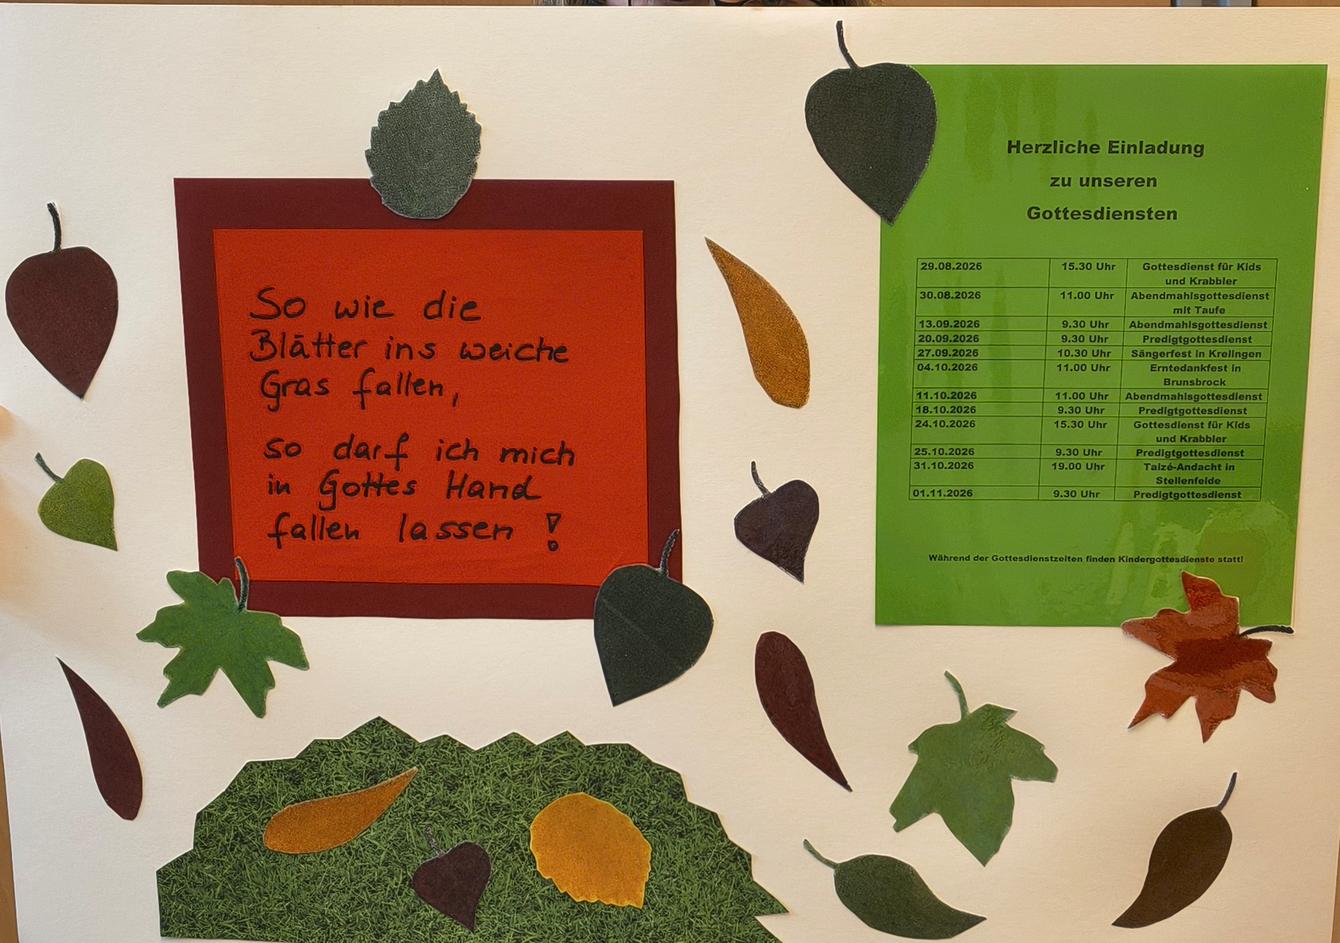 So wie die
Blätter ins weiche
Gras fallen,
so darf ich mich
in Gottes Hand
fallen lassen !
Herzliche Einladung
zu unseren
Gottesdiensten
29.08.2026 15.30 Uhr Gottesdienst für Kids
und Krabbler
30.08.2026 11.00 Uhr Abendmahlsgottesdienst
mit Taufe
13.09.2026 9.30 Uhr Abendmahlsgottesdienst
20.09.2026 9.30 Uhr Predigtgottesdienst
27.09.2026 10.30 Uhr Sängerfest in Krelingen
04.10.2026 11.00 Uhr Erntedankfest in
Brunsbrock
11.10.2026 11.00 Uhr Abendmahlsgottesdienst
18.10.2026 9.30 Uhr Predigtgottesdienst
24.10.2026 15.30 Uhr Gottesdienst für Kids
und Krabbler
25.10.2026 9.30 Uhr Predigtgottesdienst
31.10.2026 19.00 Uhr Taizé-Andacht in
Stellenfelde
01.11.2026 9.30 Uhr Predigtgottesdienst
Während der Gottesdienstzeiten finden Kindergottesdienste statt!